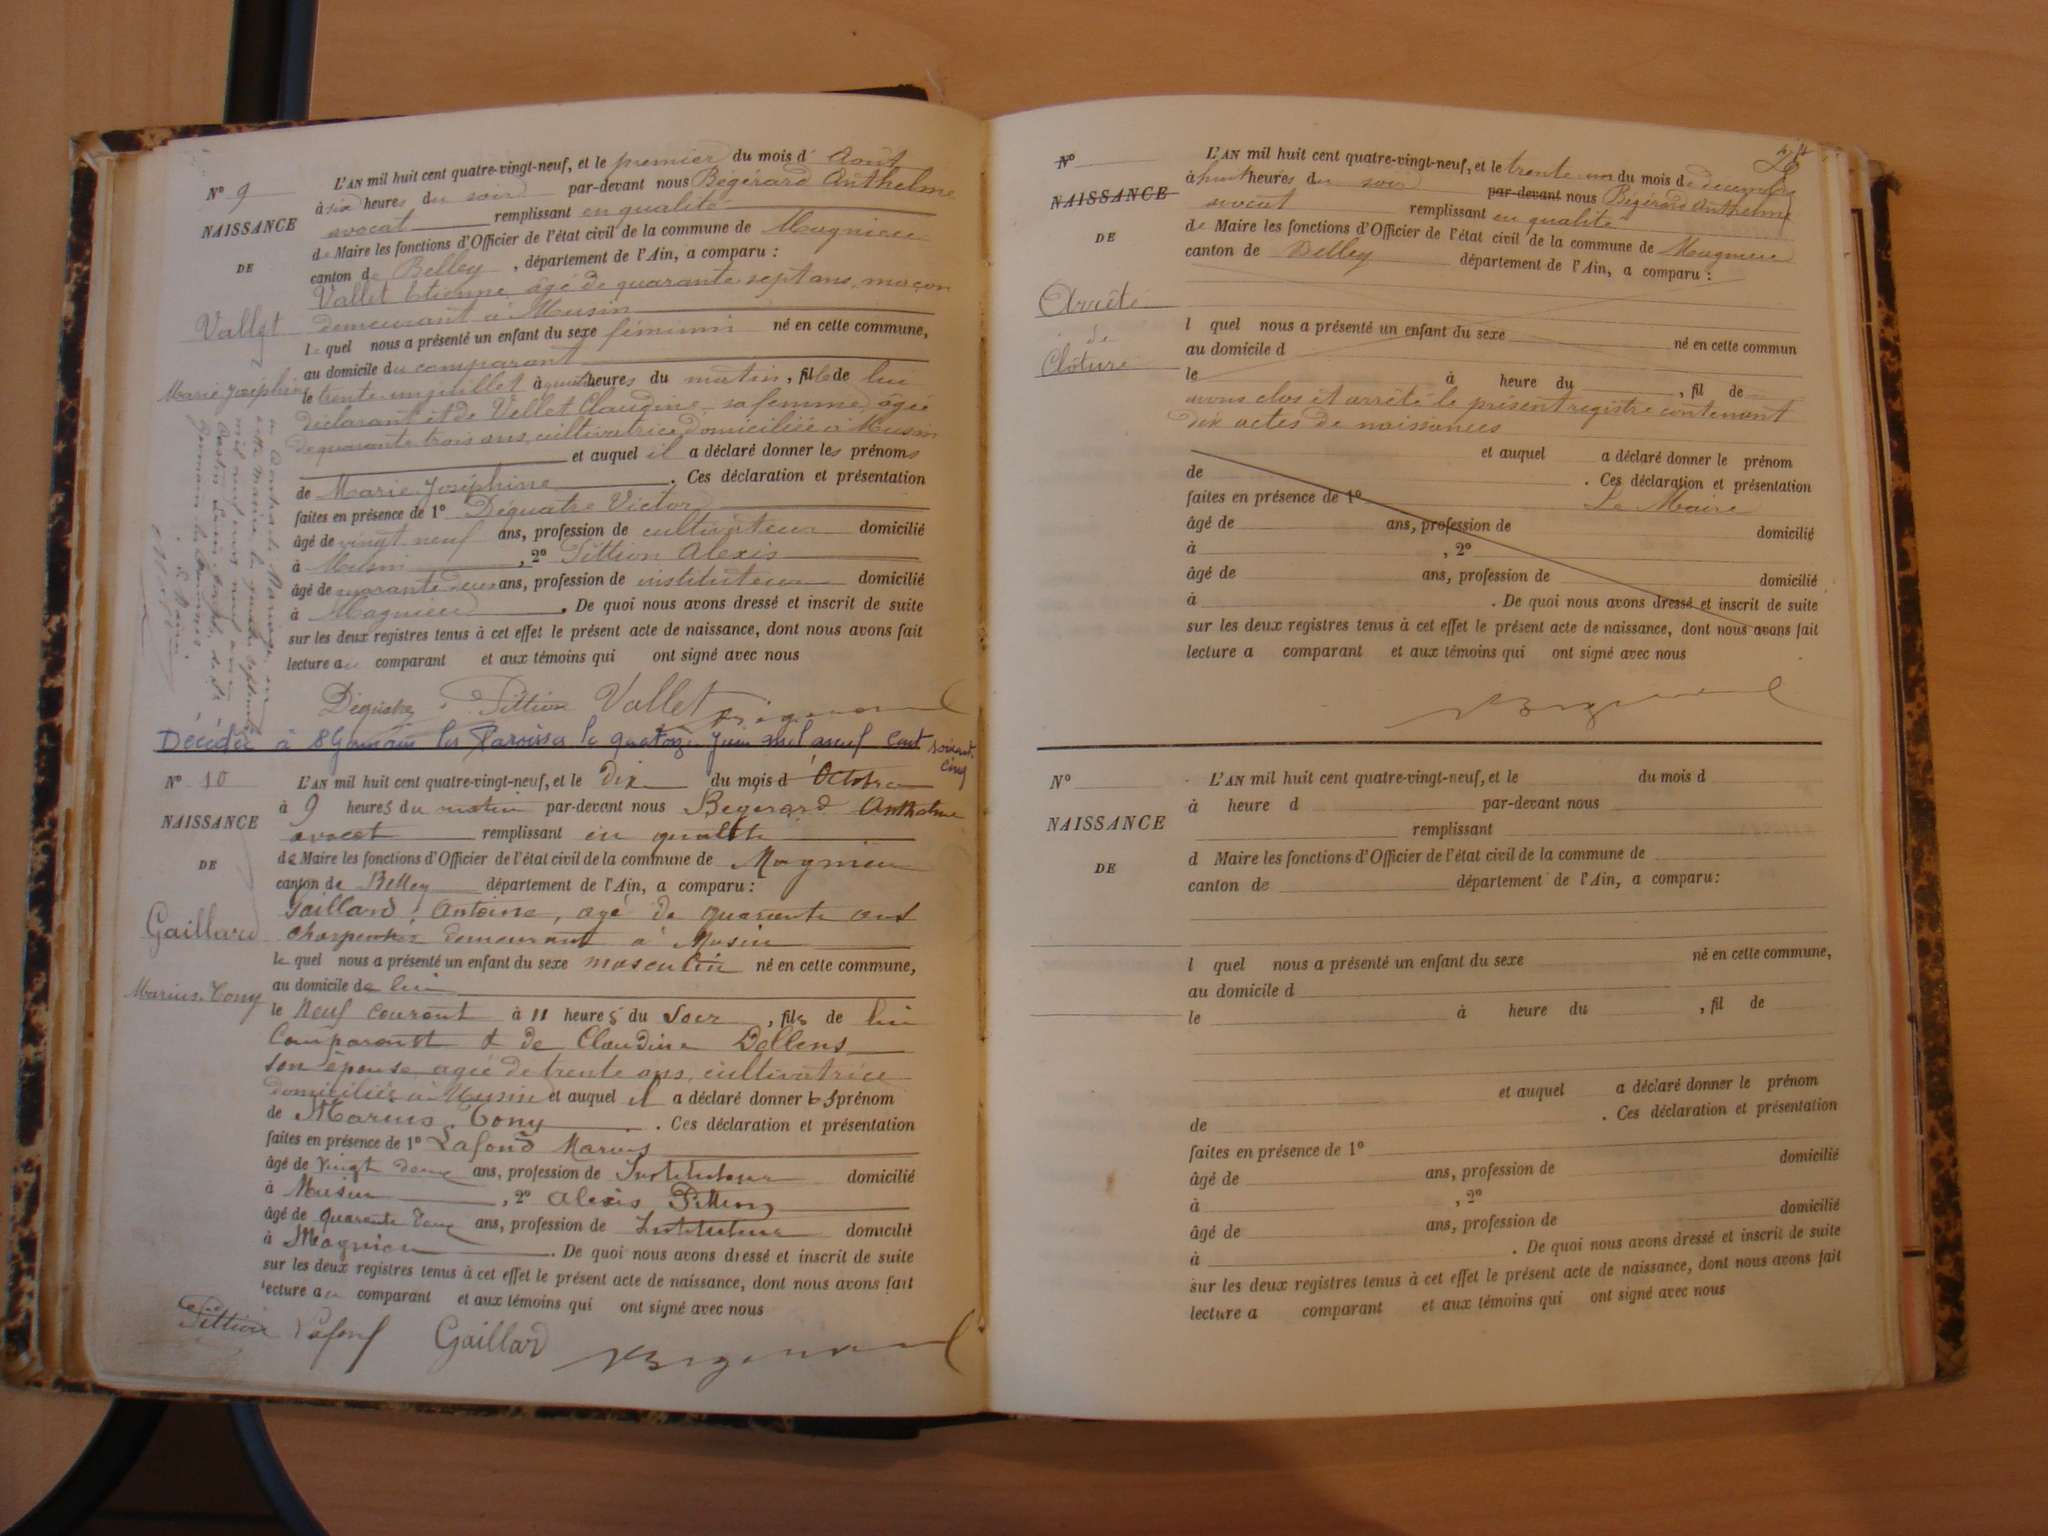 N° 9
NAISSANCE
DE
Vallet
Marie Joséphine
L'AN mil huit cent quatre-vingt-neuf, et le premier du mois d'Août
à six heures du soir par-devant nous Bégérard Anthelme
avocat remplissant en qualité
de Maire les fonctions d'Officier de l'état civil de la commune de Magnieu
canton de Belley, département de l'Ain, a comparu :
Vallet Etienne âgé de quarante sept ans, maçon
demeurant à Musin
le quel nous a présenté un enfant du sexe féminin né en cette commune,
au domicile du comparant
le trente un juillet à heures du matin, fille de lui
déclarant et de Vellet Claudine sa femme, âgée
de quarante trois ans, cultivatrice, domiciliée à Musin
et auquel il a déclaré donner les prénoms
de Marie Joséphine. Ces déclaration et présentation
faites en présence de 1° Dequatre Victor
âgé de vingt neuf ans, profession de cultivateur domicilié
à Musin, 2° Pittion Alexis
âgé de quarante deux ans, profession de instituteur domicilié
à Magnieu. De quoi nous avons dressé et inscrit de suite
sur les deux registres tenus à cet effet le présent acte de naissance, dont nous avons fait
lecture au comparant et aux témoins qui ont signé avec nous
Dequatre Pittion Vallet
Décédée à St Germain les Paroisses le quatorze Juin mil neuf cent soixante cinq
N° 10
NAISSANCE
DE
Gaillard
Marius Tony
L'AN mil huit cent quatre-vingt-neuf, et le dix du mois d'Octobre
à 9 heures du matin par-devant nous Bégérard Anthelme
avocat remplissant en qualité
de Maire les fonctions d'Officier de l'état civil de la commune de Magnieu
canton de Belley département de l'Ain, a comparu :
Gaillard Antoine, agé de quarante ans
charpentier demeurant à Musin
le quel nous a présenté un enfant du sexe masculin né en cette commune,
au domicile de lui
le neuf courant à 11 heures du soir, fils de lui
comparant & de Claudine Bellens
son épouse agée de trente ans, cultivatrice
domiciliés à Musin et auquel il a déclaré donner les prénom
de Marius Tony. Ces déclaration et présentation
faites en présence de 1° Lafond Marius
âgé de vingt deux ans, profession de Instituteur domicilié
à Musin, 2° Alexis Pittion
âgé de quarante deux ans, profession de Instituteur domicilié
à Magnieu. De quoi nous avons dressé et inscrit de suite
sur les deux registres tenus à cet effet le présent acte de naissance, dont nous avons fait
lecture au comparant et aux témoins qui ont signé avec nous
Pittion Lafond Gaillard
N°
NAISSANCE
DE
Arrêté
de
Clôture
L'AN mil huit cent quatre-vingt-neuf, et le trente un du mois de décembre
à huit heures du soir par-devant nous Bégérard Anthelme
avocat remplissant en qualité
de Maire les fonctions d'Officier de l'état civil de la commune de Magnieu
canton de Belley département de l'Ain, a comparu :
l quel nous a présenté un enfant du sexe né en cette commun
au domicile d
le à heure du, fil de
avons clos et arrêté le présent registre contenant
dix actes de naissances
et auquel a déclaré donner le prénom
de. Ces déclaration et présentation
faites en présence de 1° Le Maire
âgé de ans, profession de domicilié
à, 2°
âgé de ans, profession de domicilié
à. De quoi nous avons dressé et inscrit de suite
sur les deux registres tenus à cet effet le présent acte de naissance, dont nous avons fait
lecture a comparant et aux témoins qui ont signé avec nous
N°
NAISSANCE
DE
L'AN mil huit cent quatre-vingt-neuf, et le du mois d
à heure d par-devant nous
remplissant
d Maire les fonctions d'Officier de l'état civil de la commune de
canton de département de l'Ain, a comparu :
l quel nous a présenté un enfant du sexe né en cette commune,
au domicile d
le à heure du, fil de
et auquel a déclaré donner le prénom
de. Ces déclaration et présentation
faites en présence de 1°
âgé de ans, profession de domicilié
à, 2°
âgé de ans, profession de domicilié
à. De quoi nous avons dressé et inscrit de suite
sur les deux registres tenus à cet effet le présent acte de naissance, dont nous avons fait
lecture a comparant et aux témoins qui ont signé avec nous